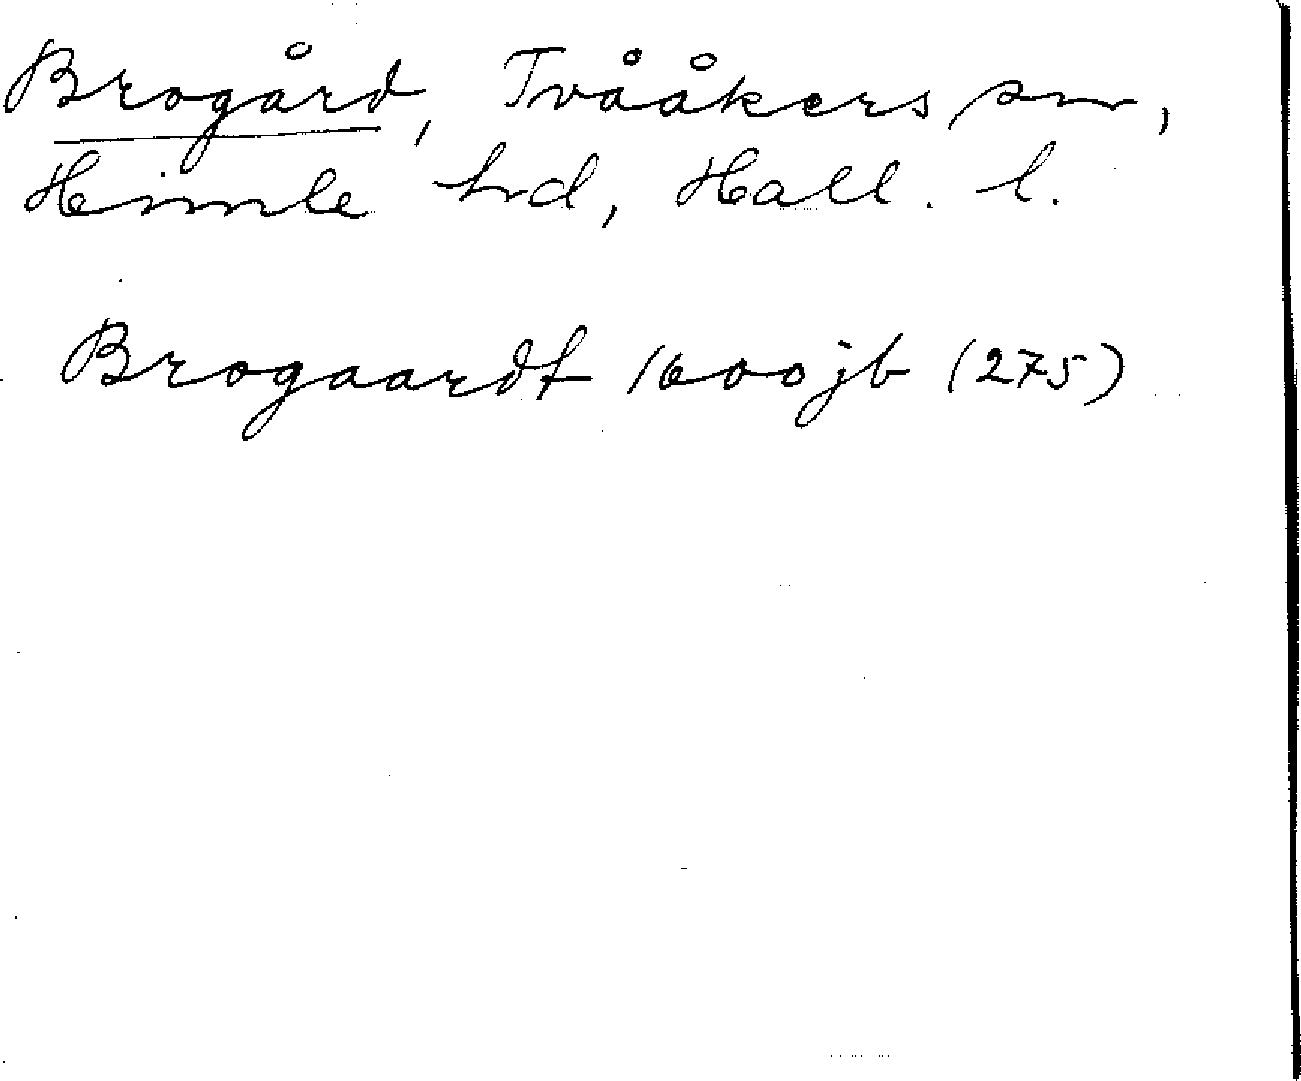 Brogård, Tvååkers sn,
Himle hd, Hall. l.
Brogaardt 1600 jb (275)